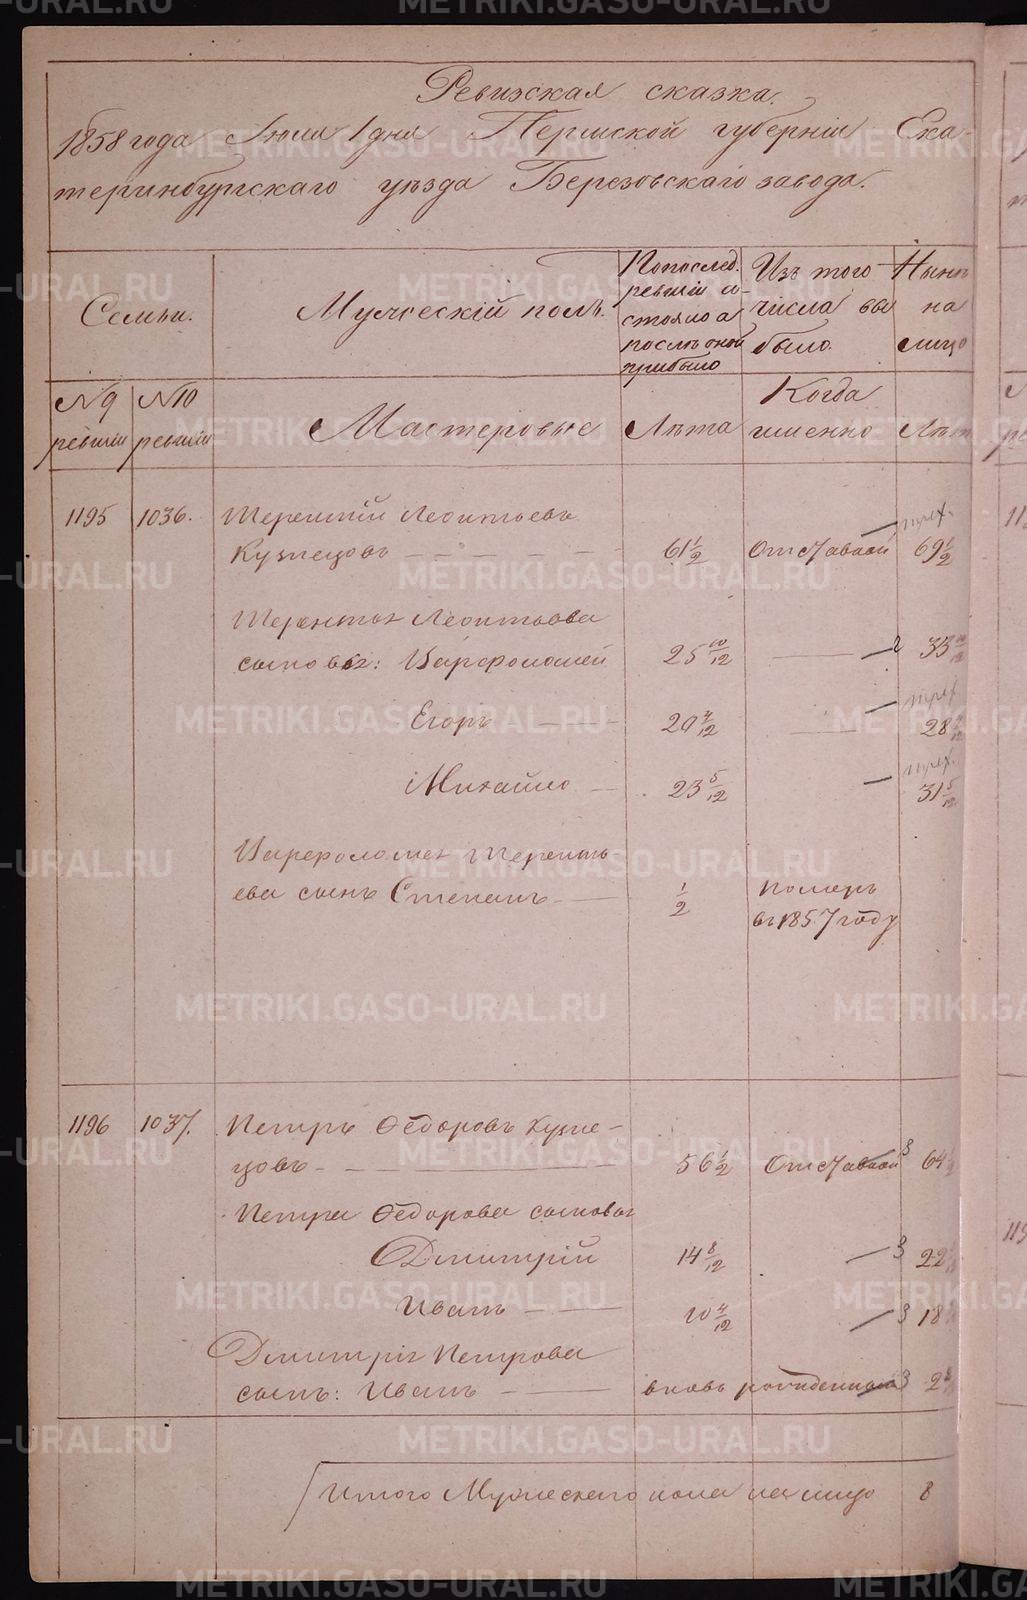 Ревизская сказка.
1858 года Июня 1 дня Пермской губерніи Ека-
теринбургскаго уѣзда Березовскаго завода.
Семьи.
Мужескій полъ.
По послед.
ревизіи со-
стояло а
послѣ оной
прибыло
Изъ того
числа вы
было.
Нынѣ
на
лицо
№ 9
ревизіи
№ 10
ревизіи
Мастеровые
Лѣта
Когда
именно
Лѣта
1195 1036. Терентій Леонтьевъ
Кузнецовъ 61 1/2 Отставной 69 1/2
Терентья Леонтьева
сыновья: Варфоломей 25 10/12 2 33 10/12
Егоръ 20 4/12 28 4/12
Михайло 23 5/12 31 5/12
Варфоломея Теренть-
ева сынъ Степанъ 1/2 померъ
въ 1857 году
1196 1037. Петръ Ѳедоровъ Кузне-
цовъ 56 1/2 Отставной 3 64 1/2
Петра Ѳедорова сыновья
Дмитрій 14 8/12 3 22
Иванъ 10 4/12 3 18
Дмитрія Петрова
сынъ: Иванъ вновь рожденный 3 2
Итого Мужескаго пола на лицо 8
METRIKI.GASO-URAL.RU